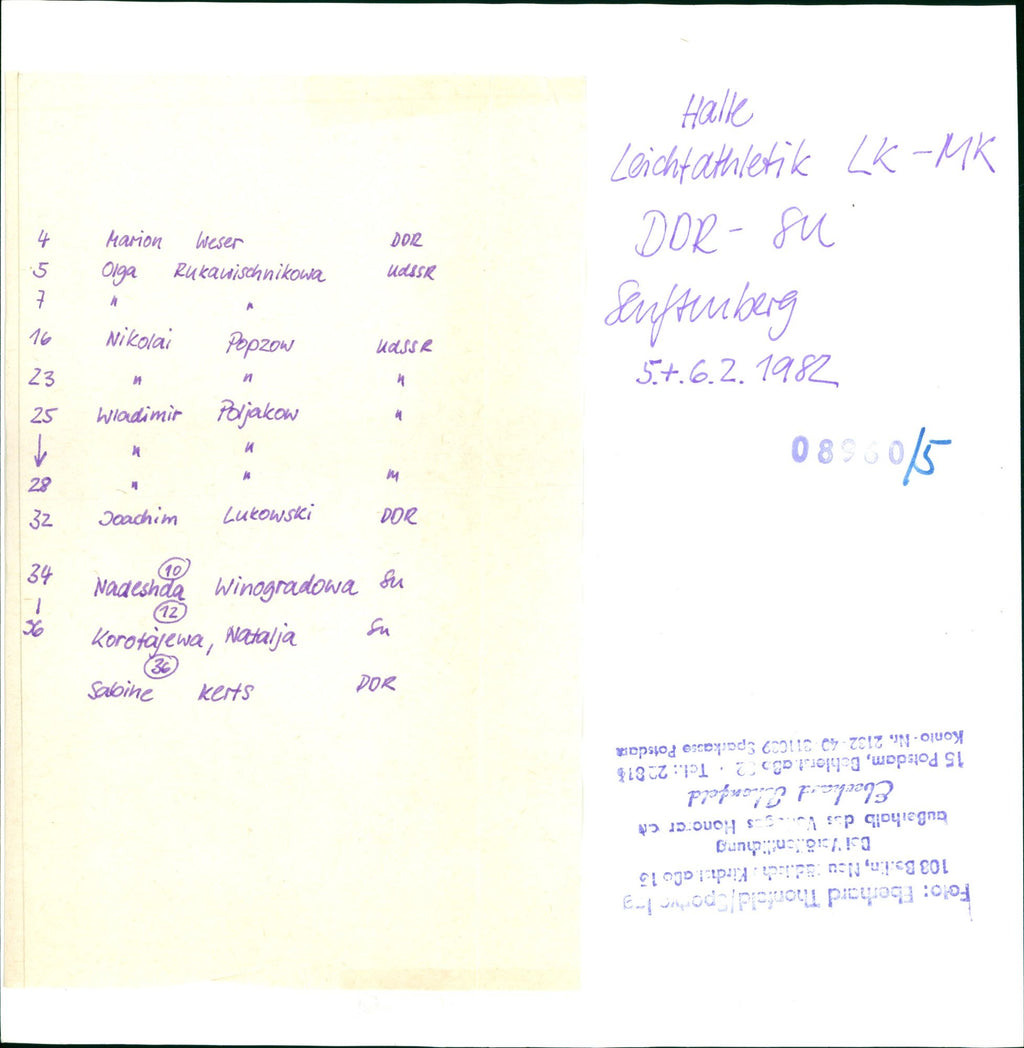 4 Marion Weser DDR
5 Olga Rukawischnikowa UdSSR
7 " "
16 Nikolai Popzow UdSSR
23 " " "
25 Wladimir Poljakow "
↓ " "
28 " " "
32 Joachim Lukowski DDR
34 Nadeshda (10) Winogradowa SU
|
36 Korotajewa, (12) Natalja SU
(36)
Sabine Kerts DDR
Halle
Leichtathletik LK-MK
DDR - SU
Senftenberg
5.+.6.2.1982
08960/5
Foto: Eberhard Thonfeld/
108 Berlin,
Bei Veröffentlichung
außerhalb des Honorar an
Eberhard Thonfeld
15 Potsdam,
Konto-Nr. Sparkasse Potsdam